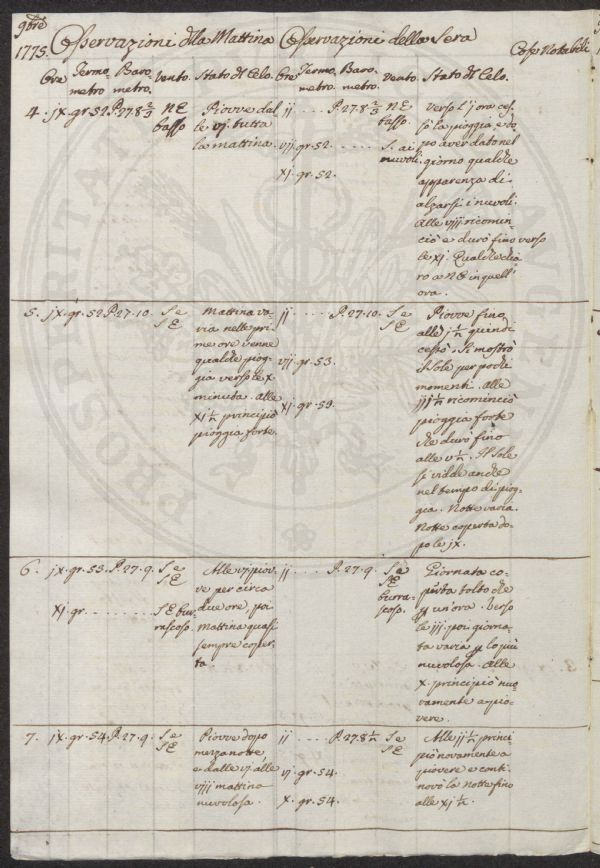 9bre
1775. Osservazioni dlla Mattina Osservazioni della Sera Cose Notabili
Ore Termo- Baro- Vento. Stato dl Celo. Ore Termo- Baro- Vento. Stato dl Celo.
metro metro. metro. metro.
4. jx. gr. 52 P. 27. 8 2/3 NE Piove dal
basso. le vj. tutta
la mattina.
ij .... P. 27. 8 2/3 NE
basso.
vij gr. 52. ..... S. ai
nuvoli.
xj. gr. 52.
verso l'j ora ces-
sò la pioggia, e do-
po aver dato nel
giorno qualche
apparenza di
alzarsi i nuvoli.
Alle viij ricomin-
ciò e durò fino verso
le xj. Qualche chia-
ro a NE in quell'
ora.
5. jx. gr. 52 P. 27. 10. S e
SE
Mattina va-
ria nelle pri-
me ore venne
qualche piog-
gia verso le x
minuta. alle
xi 1/2 principiò
pioggia forte.
ij .... P. 27. 10. S e
SE
vij. gr. 53.
xj. gr. 53.
Piove fino
alle j 1/2 quindi
cessò. Si mostrò
il Sole per pochi
momenti. alle
iij 1/2 ricominciò
pioggia forte
che durò fino
alle v 1/2. Il Sole
si vidde anche
nel tempo di piog-
gia. Notte varia.
Notte coperta do-
po le jx.
6. jx. gr. 53. P. 27. 9. S e
SE
xj. gr. ........ SE bur-
rascoso.
Alle vj piov-
ve per circa
due ore, poi
Mattina quasi
sempre coper-
ta.
ij .... P. 27. 9. S e
SE
burra-
scoso.
Giornata co-
perta tolto che
p un'ora. Verso
le iij. poi giorna-
ta varia p lo più
nuvolosa. alle
x. principiò nuo-
vamente a pio-
vere.
7. jx. gr. 54. P. 27. 9. S e
SE
Piovve dopo
mezza notte
e dalle vj. alle
viij mattina
nuvolosa.
ij .... P. 27. 8 1/2 S e
SE
vj. gr. 54.
x. gr. 54.
Alle ij 1/2 princi-
piò novamente a
piovere e conti-
novò la notte fino
alle xj 1/2.